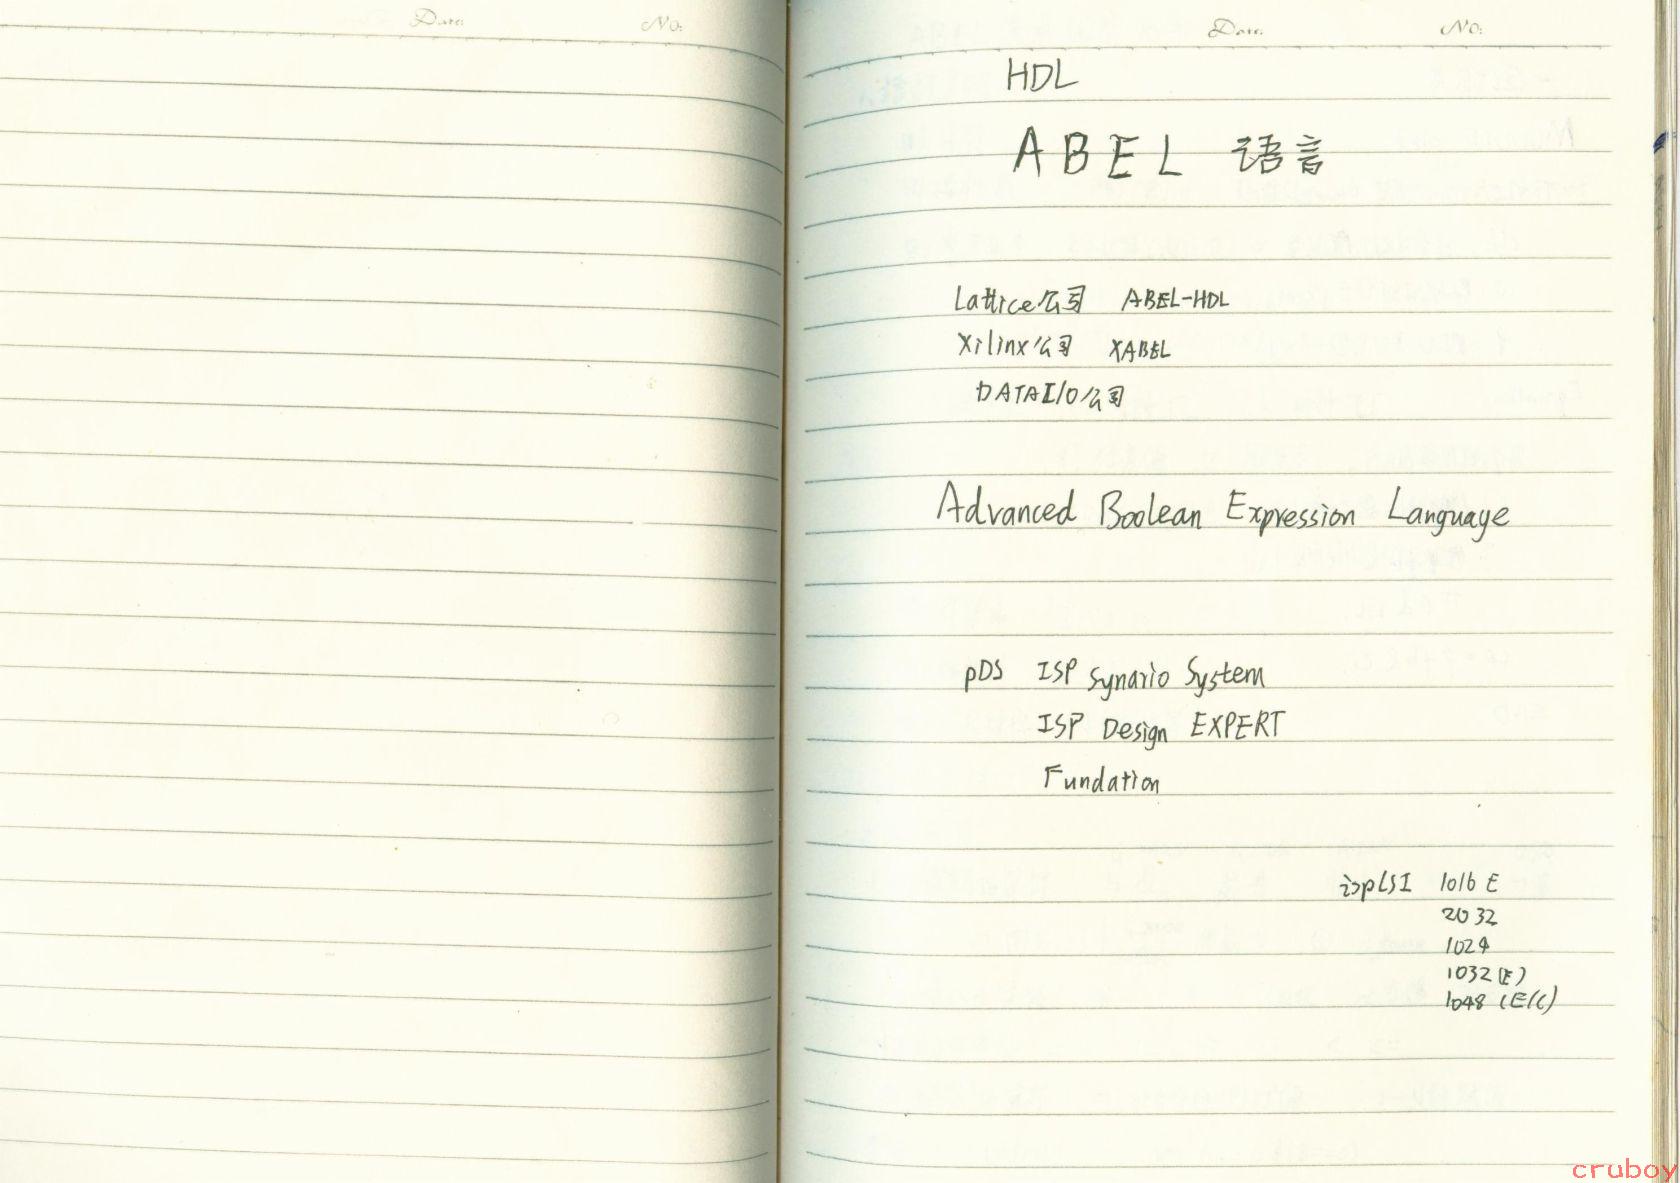 Date: No:
Date: No:
HDL
ABEL 语言
Lattice公司 ABEL-HDL
Xilinx公司 XABEL
DATAI/O公司
Advanced Boolean Expression Language
pDS ISP Synario System
ISP Design EXPERT
Fundation
ispLSI 1016 E
2032
1024
1032(E)
1048 (E/C)
cruboy